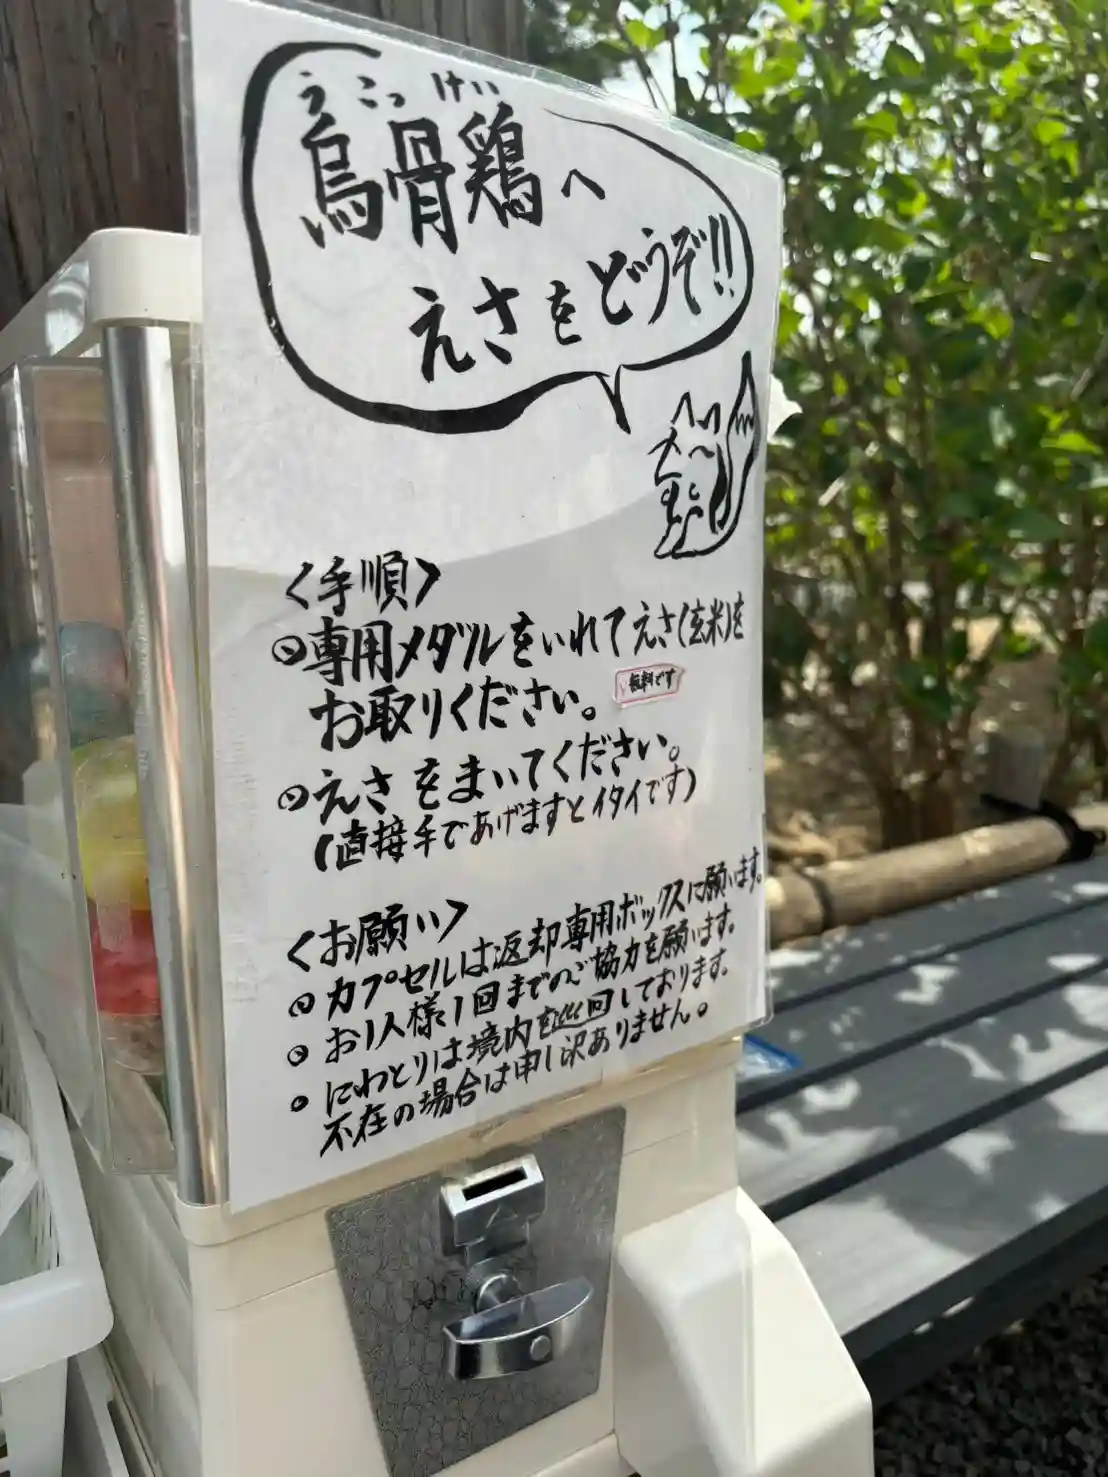 うこっけい
烏骨鶏へ
えさをどうぞ!!
〈手順〉
専用メダルをいれてえさ(玄米)を
お取りください。
無料です
えさをまいてください。
(直接手であげますとイタイです)
〈お願い〉
カプセルは返却専用ボックスに願います。
お1人様1回までのご協力を願います。
にわとりは境内を巡回しております。
不在の場合は申し訳ありません。